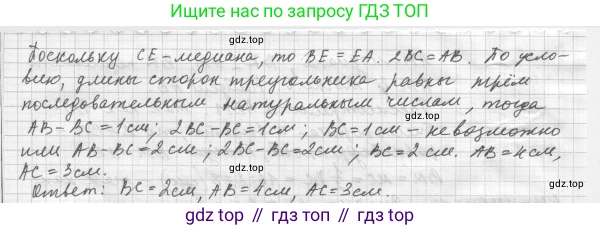 Ищите нас по запросу ГДЗ ТОП
gdz.top
Поскольку CE - медиана, то BE = EA. 2BC = AB. По усло-
вию, длины сторон треугольника равны трём
последовательным натуральным числам, тогда
gdz.top
AB - BC = 1см; 2BC - BC = 1см; BC = 1см - невозможно
или AB - BC = 2 см; 2BC - BC = 2см; BC = 2 см. AB = 4см,
AC = 3см.
Ответ: BC = 2см, AB = 4см, AC = 3см.
gdz.top
gdz.top // гдз.топ // gdz.top